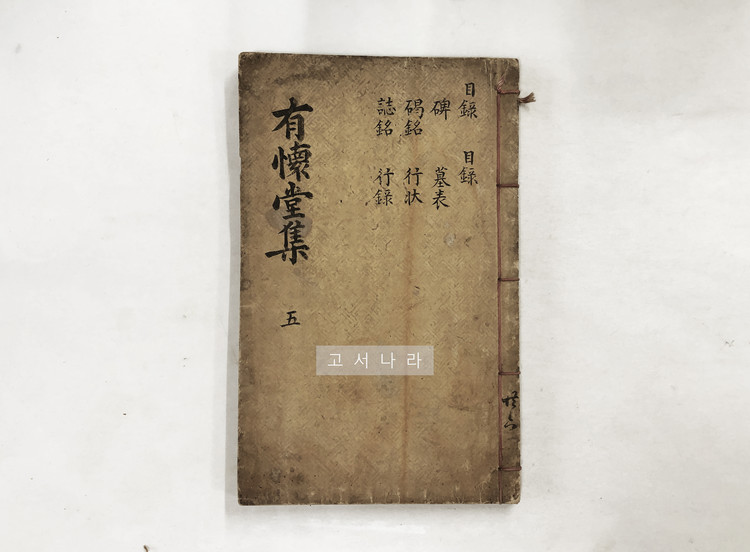 目錄 目錄
碑 墓表
碣銘 行狀
誌銘 行錄
有懷堂集
五
고서나라